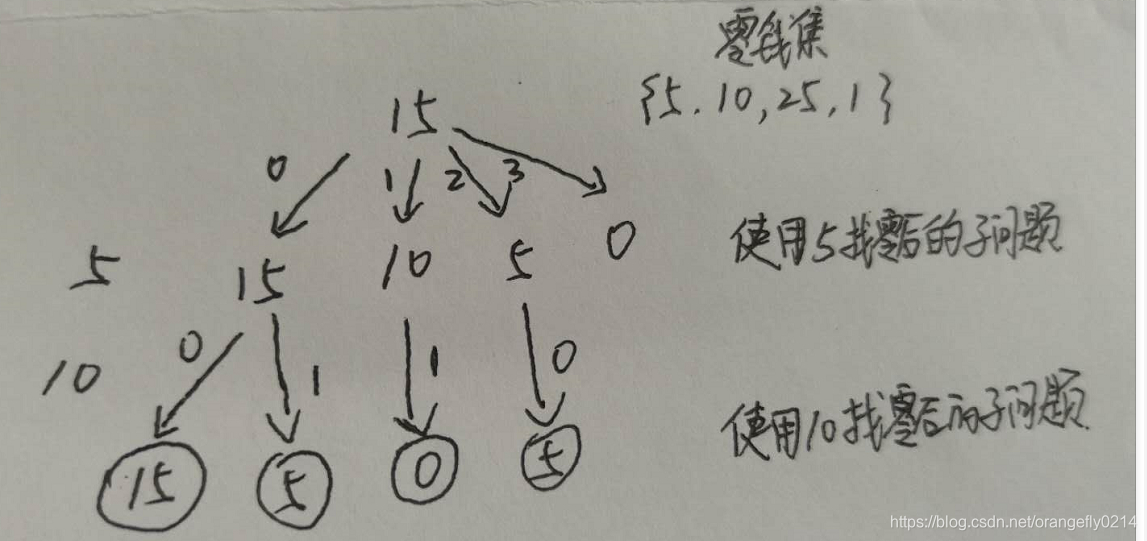 零钱集
{5.10,25,1}
15
0 1 2 3
5 15 10 5 0 使用5找零后的子问题
10 0 1 1 0
15 5 0 5 使用10找零后的子问题
https://blog.csdn.net/orangefly0214